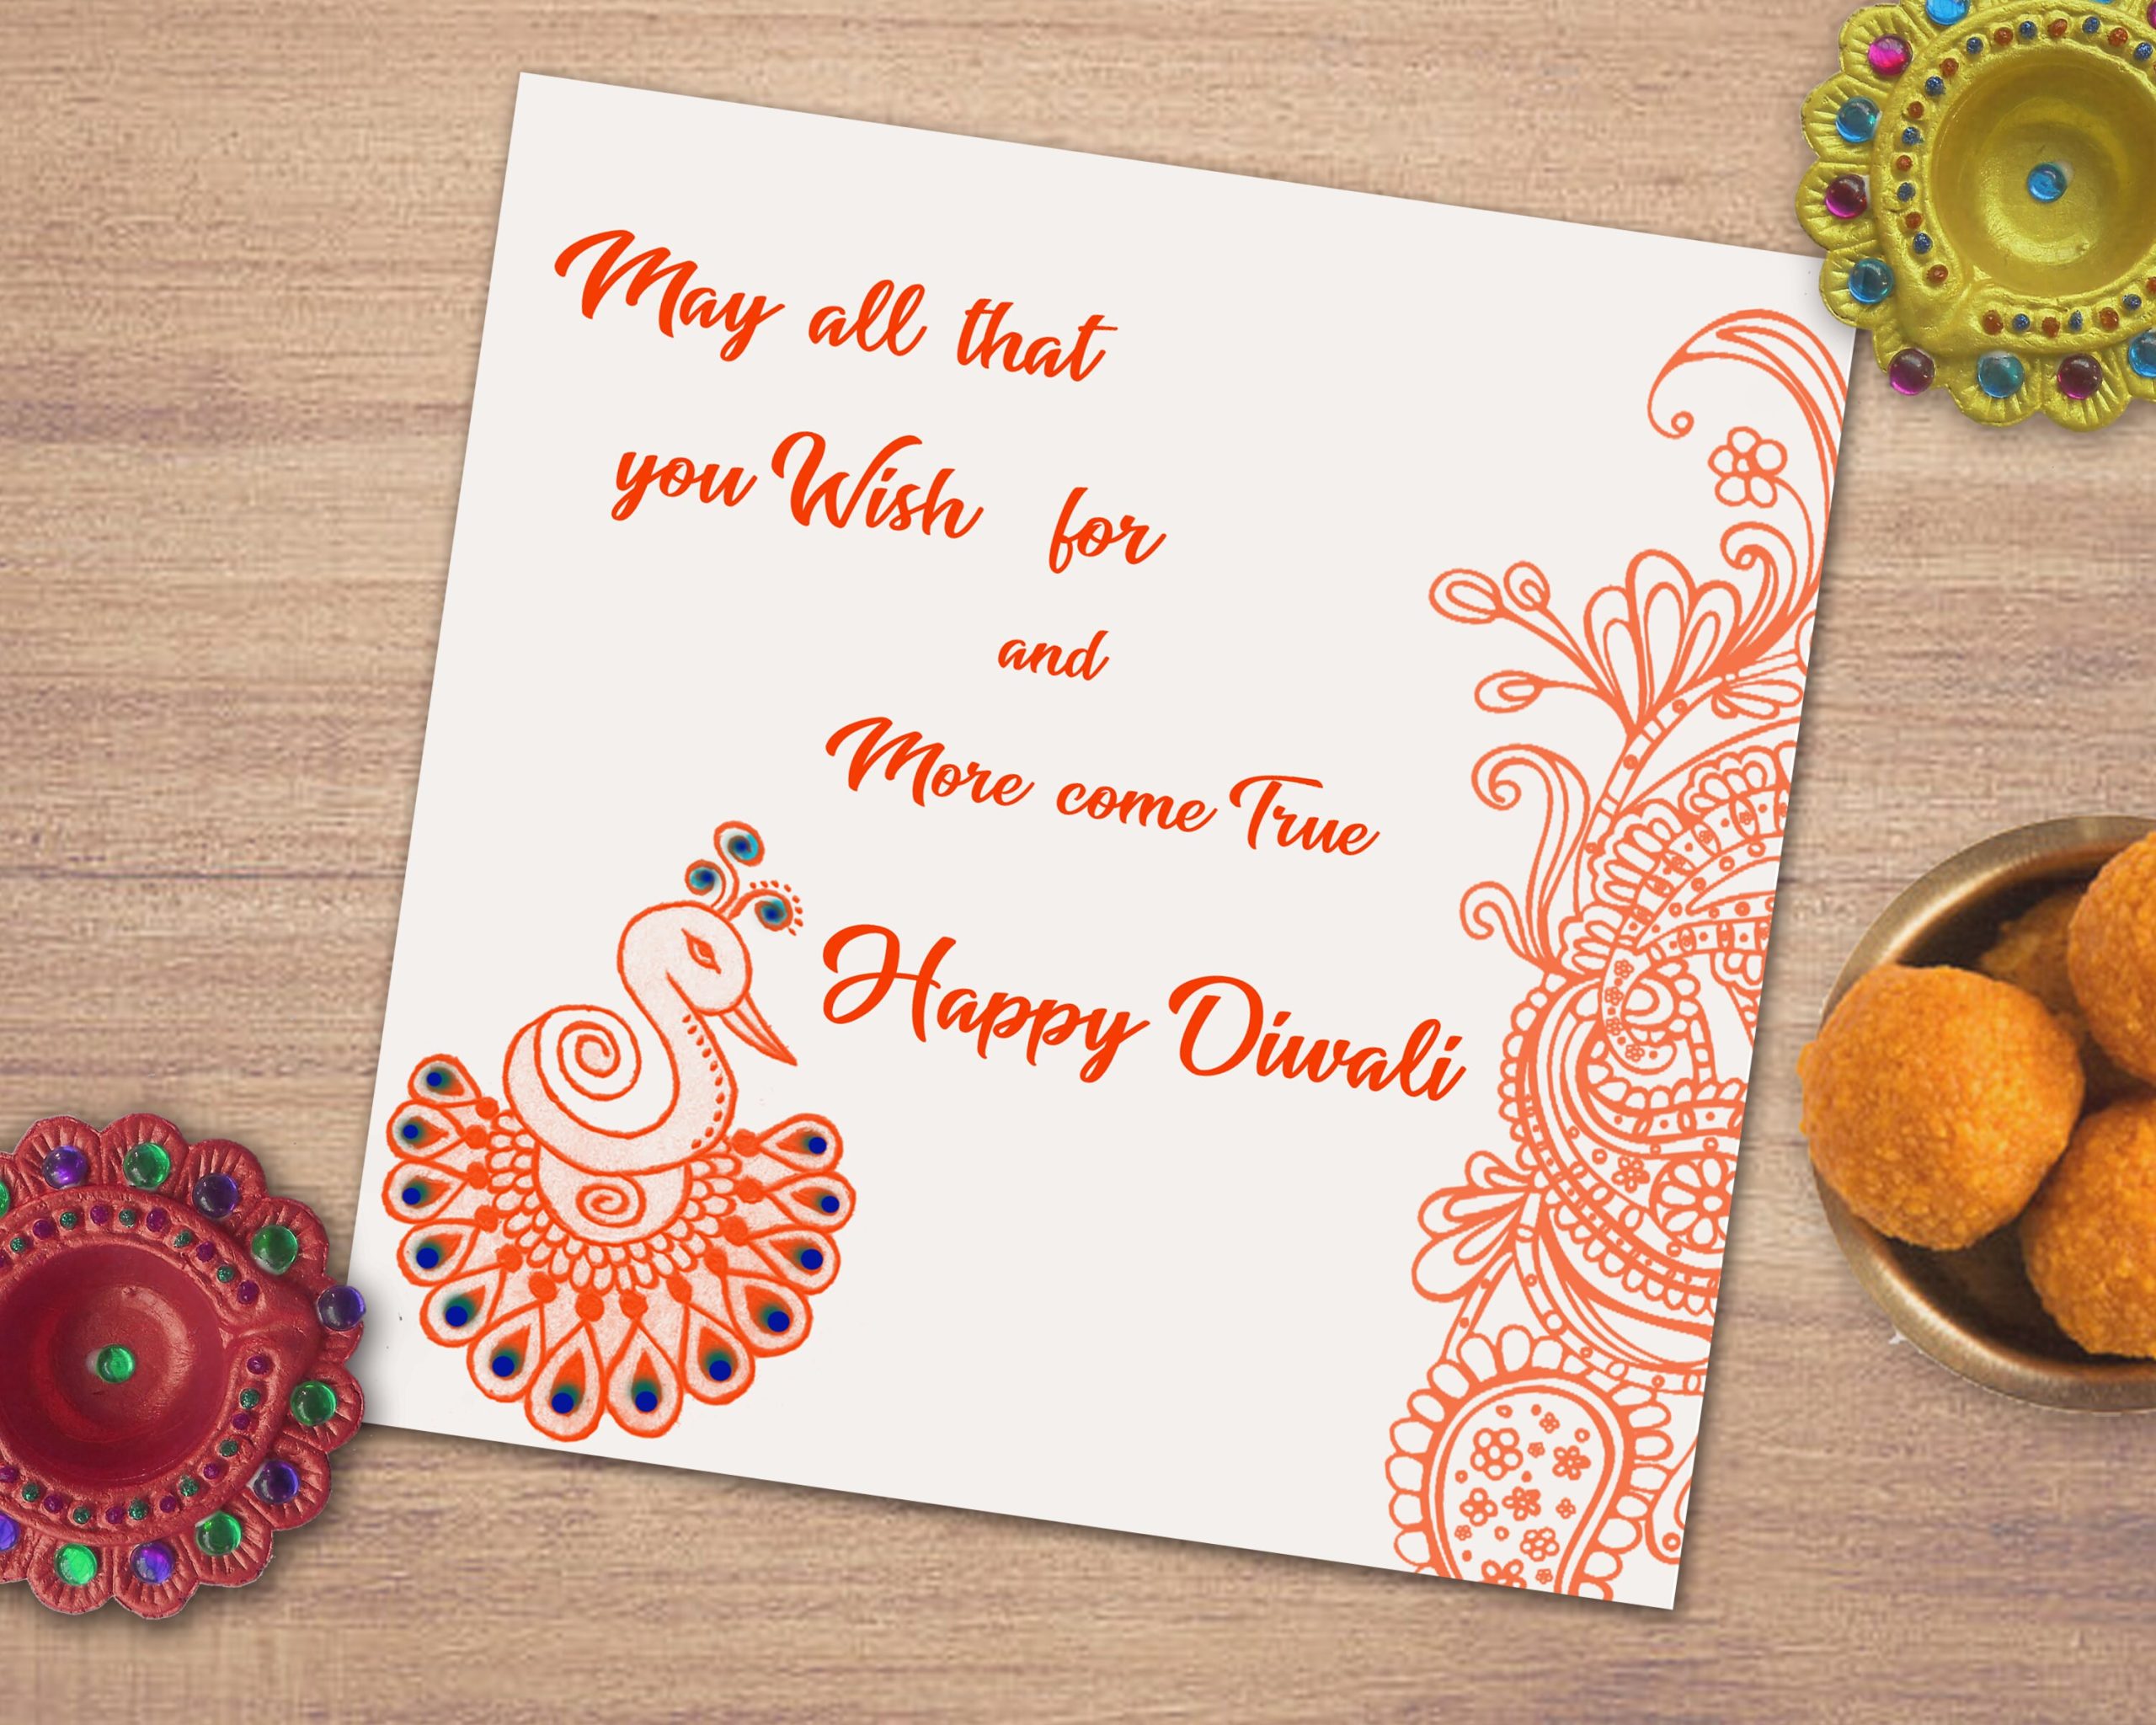 May all that
you Wish for
and
More come True
Happy Diwali